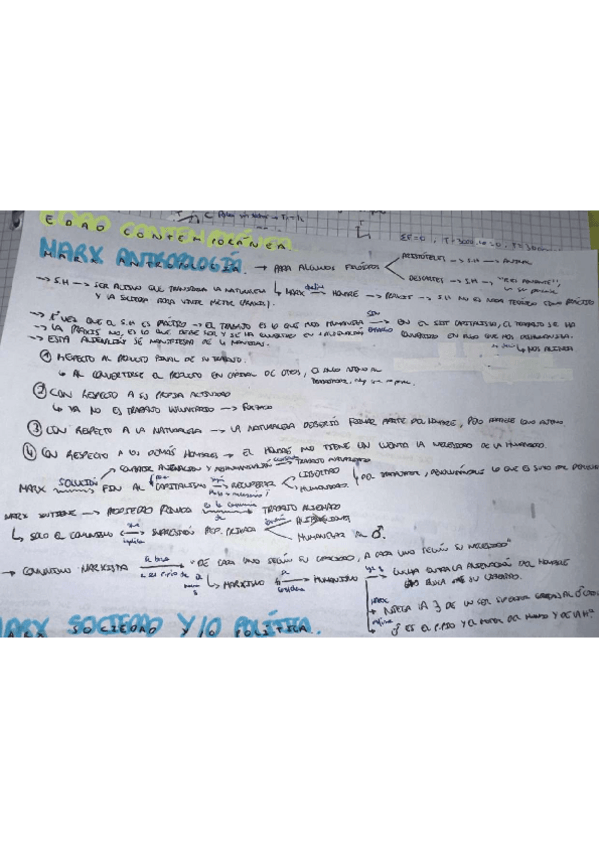 EDAD CONTEMPORÁNEA
EDAD CONTEMPORÁNEA
MARX ANTROPOLOGÍA
MARX ANTROPOLOGÍA. → PARA ALGUNOS FILÓSOFOS
ARISTÓTELES → S.H → ANIMAL
DESCARTES → S.H → "RES PENSANTE",
→ S.H → SER ACTIVO QUE TRANSFORMA LA NATURALEZA
Y LA SOCIEDAD PARA VIVIR
MARX define HOMBRE → PRAXIS → S.H NO ES NADA TEÓRICO SINO PRÁCTICO
→ 1ª VEZ QUE EL S.H ES PRÁCTICO → EL TRABAJO ES LO QUE NOS HUMANIZA → EN EL SIST CAPITALISTA, EL TRABAJO SE HA
CONVERTIDO EN ALGO QUE NOS DESHUMANIZA.
→ LA PRAXIS NO ES LO QUE DEBE SER Y SE HA CONVERTIDO EN ALIENACIÓN
↳ NOS ALIENA
→ ESTA ALIENACIÓN SE MANIFIESTA DE 4 MANERAS:
① RESPECTO AL PRODUCTO FINAL DE SU TRABAJO.
↳ AL CONVERTIRSE EL PRODUCTO EN CAPITAL DE OTROS, ES ALGO AJENO AL
② CON RESPECTO A SU PROPIA ACTIVIDAD
↳ YA NO ES TRABAJO VOLUNTARIO → FORZADO
③ CON RESPECTO A LA NATURALEZA → LA NATURALEZA DEBERÍA FORMAR PARTE DEL HOMBRE, PERO APARECE COMO AJENO
④ CON RESPECTO A LOS DEMÁS HOMBRES → EL HOMBRE NO TIENE EN CUENTA LA NECESIDAD DE LA HUMANIDAD
MARX SOLUCIÓN
COMBATIR ALIENACIÓN Y DESHUMANIZACIÓN TRABAJO
FIN AL CAPITALISMO RECUPERAR
LIBERTAD
HUMANIDAD
DEL TRABAJADOR, DEVOLVIÉNDOLE LO QUE ES SUYO
MARX SOSTIENE → PROPIEDAD PRIVADA es la causa TRABAJO ALIENADO
↳ SOLO EL COMUNISMO implica SUPRESIÓN PROP. PRIVADA
ALIENACIONES
HUMANIZAR AL ♂.
→ COMUNISMO MARXISTA se basa "DE CADA UNO SEGÚN SU CAPACIDAD, A CADA UNO SEGÚN SU NECESIDAD"
↳ MARXISMO se considera HUMANISMO
LUCHA CONTRA LA ALIENACIÓN DEL HOMBRE
BUSCA SU LIBERTAD.
NIEGA LA ∃ DE UN SER SUPERIOR
♂ ES EL Y EL MOTOR DEL MUNDO Y DE LA Hª
MARX SOCIEDAD Y/O POLÍTICA.
MARX SOCIEDAD Y/O POLÍTICA.